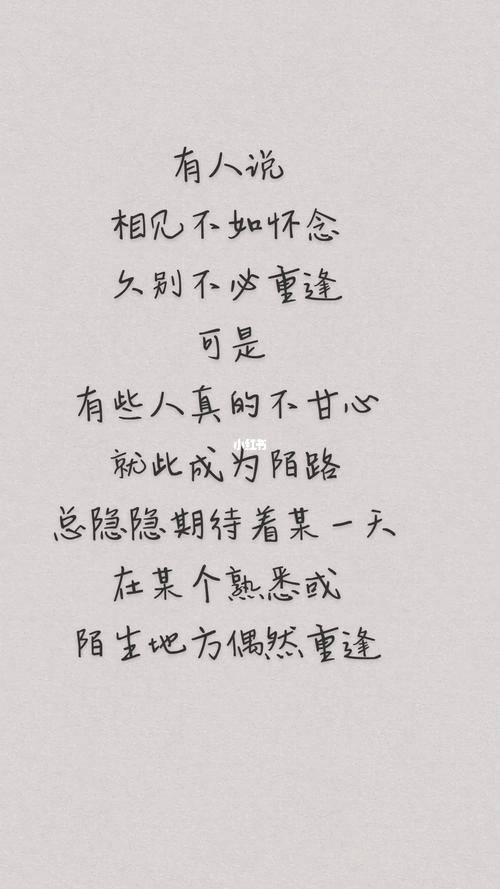 有人说
相见不如怀念
久别不必重逢
可是
有些人真的不甘心
小红书
就此成为陌路
总隐隐期待着某一天
在某个熟悉或
陌生地方偶然重逢